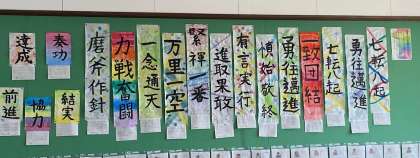 達成
奏功
前進
協力
結実
磨斧作針
力戦奮闘
一念通天
万里一空
緊褌一番
進取果敢
有言実行
慎始敬終
勇往邁進
一致団結
七転八起
勇往邁進
七転八起